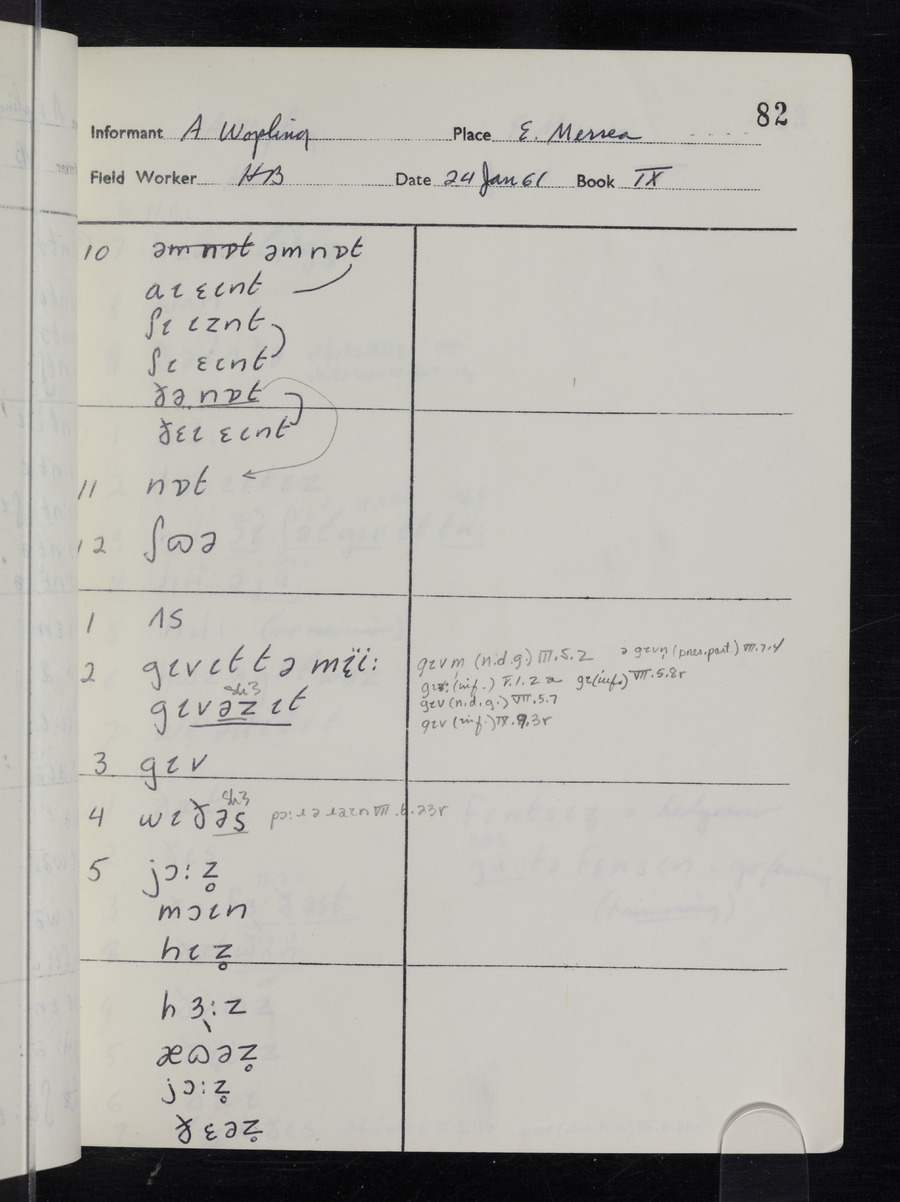 82
Informant A Wopling Place E. Mersea
Field Worker HB Date 24 Jan 61 Book IX
10 əmnɒt əmnɒt
aɪ ɛɪnt
ʃɪ ɪznt
ʃɪ ɛɪnt
ðə nɒt
ðɛɪ ɛɪnt
11 nɒt
12 ʃɷə
1 ʌs
2 gɪvɪt tə mï:
gɪvəzɪt
sh3
gɪvm̩ (n.d.g.) III.5.2 ə gɪvn̩ (pres.part) VII.7.4
(inf.) V.1.2a gɪ(inf.) VII.5.8r
gɪv (n.d.g.) VIII.5.7
gɪv (inf.) IX.9.3r
3 gɪv
4 wɪðəs
sh3
5 jɔ:z̥
mɔɪn
hɪz̥
hɜ:z
æɷəz̥
jɔ:z̥
ðɛəz̥